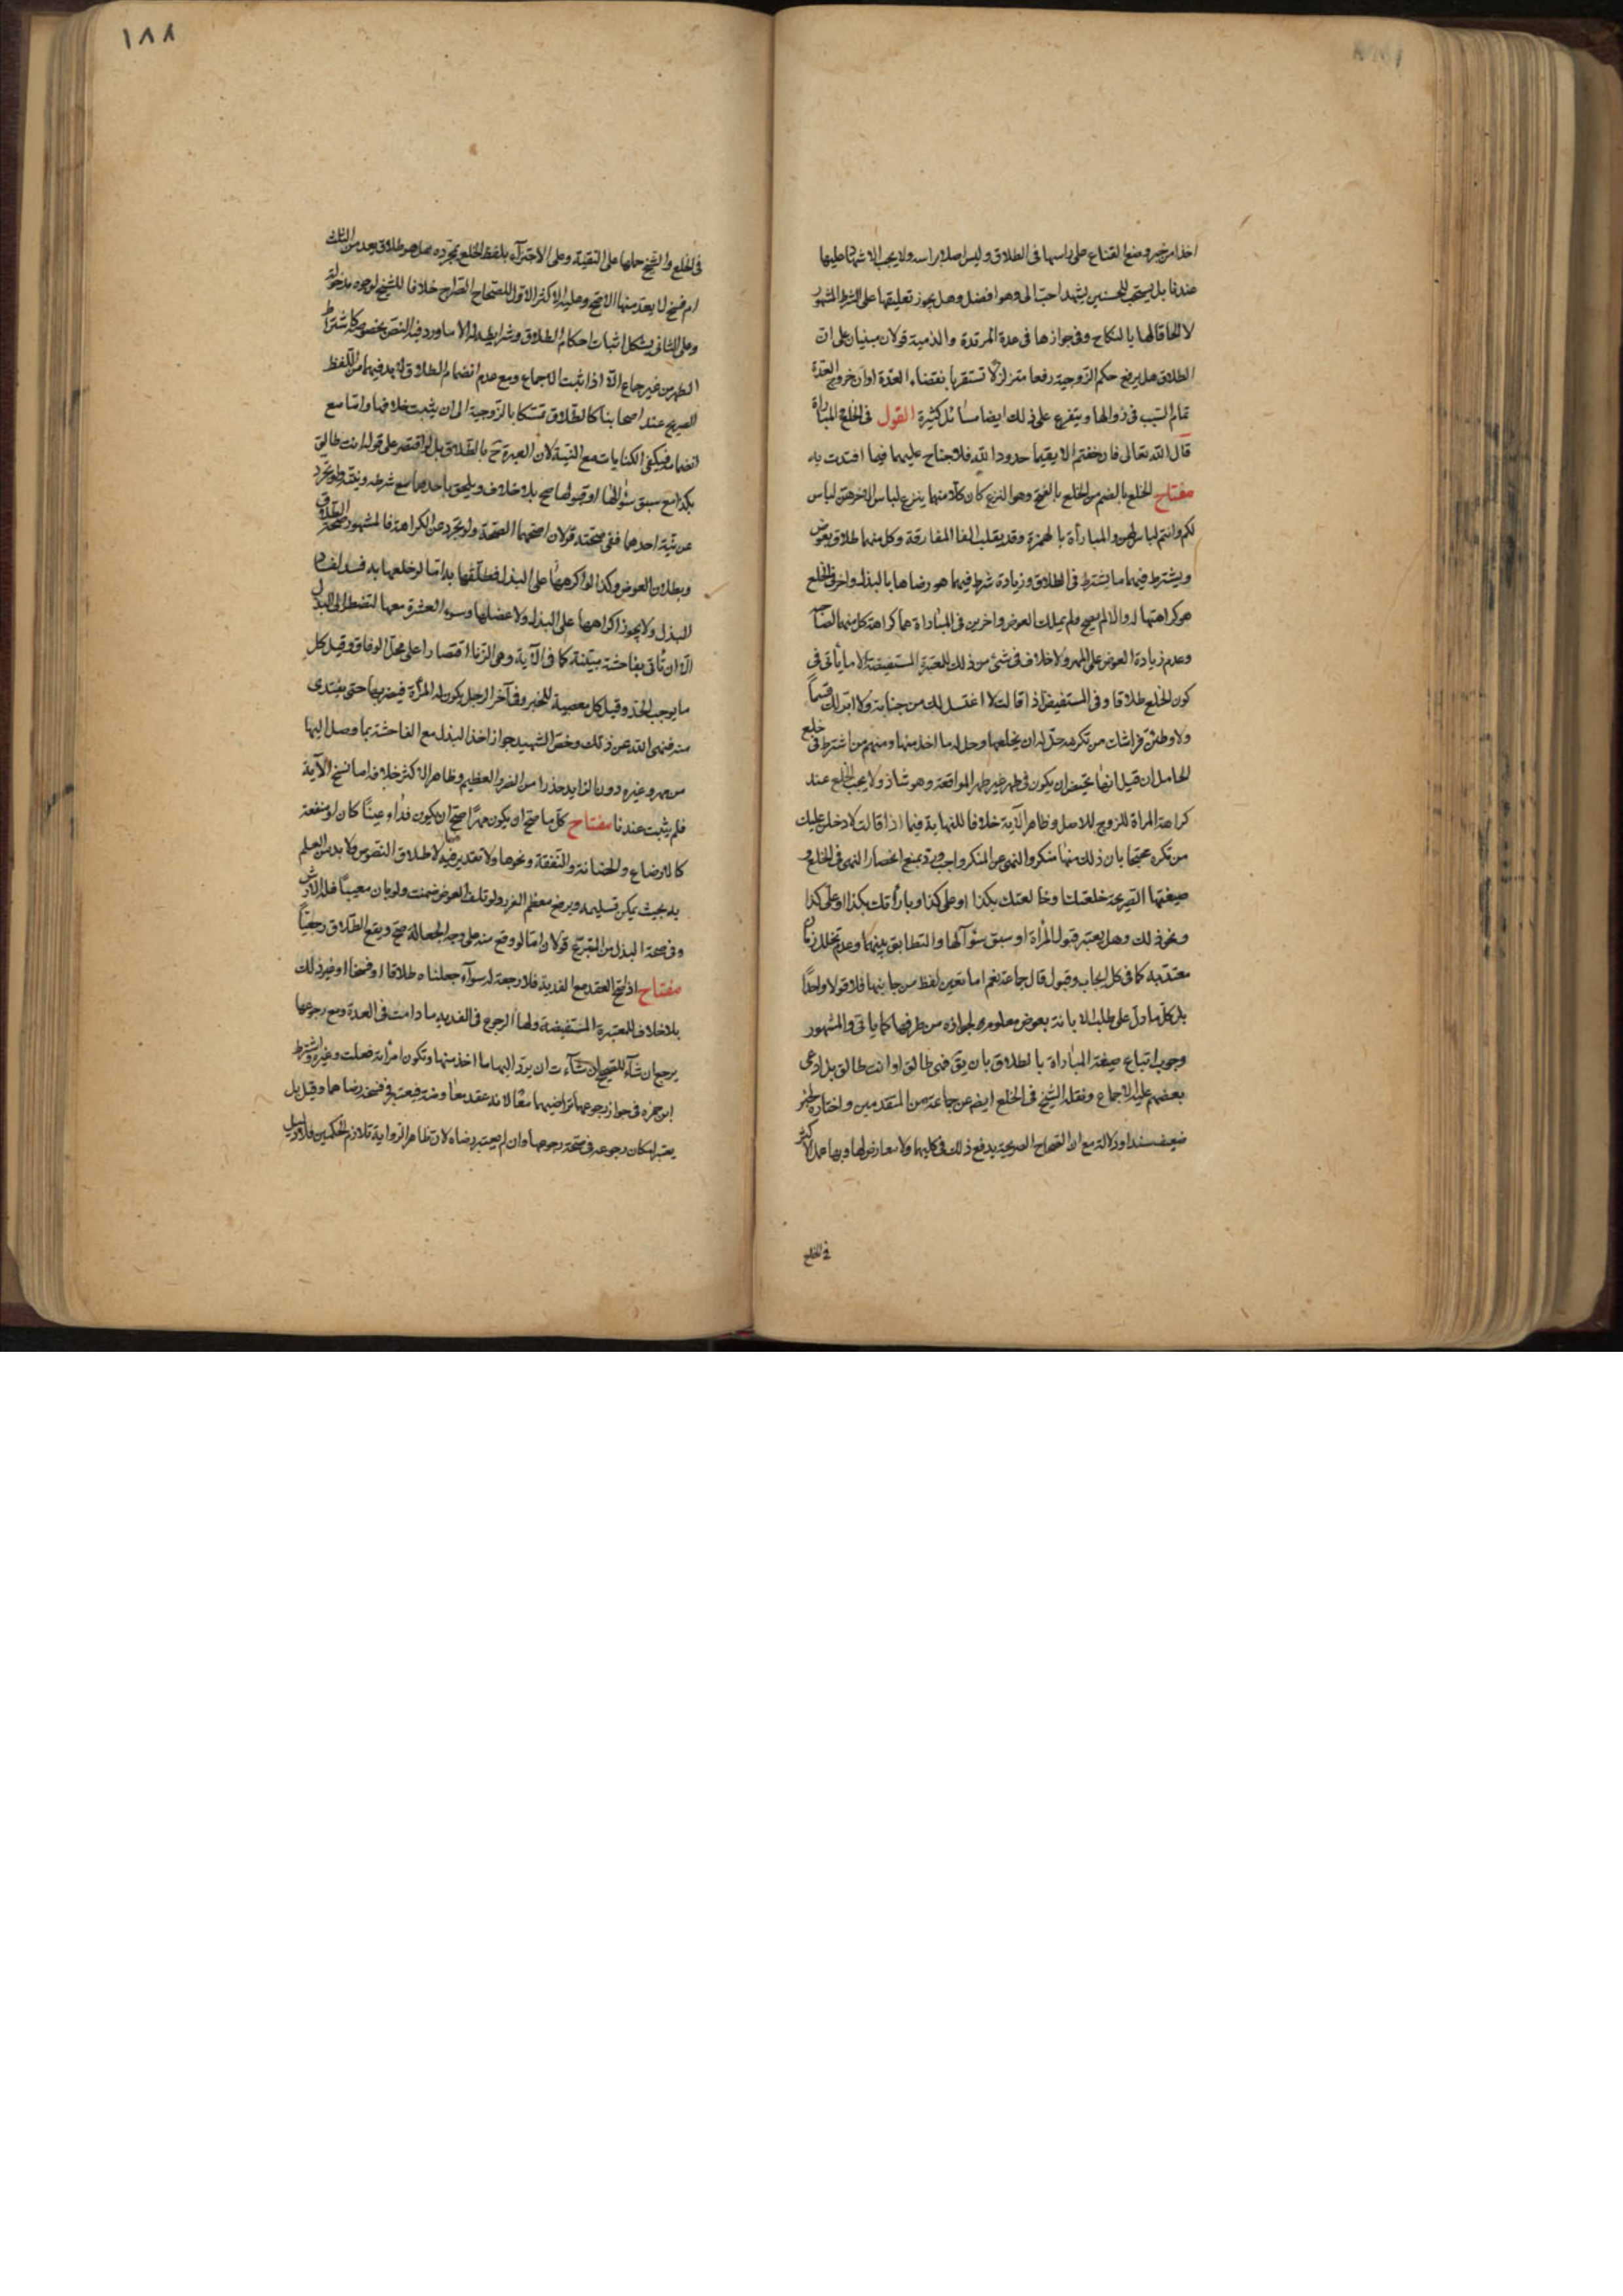 اخذا من خبر وضع القناع على راسها فى الطلاق وليس اصلا براسه ولا يجب الاشهاد عليها
عندنا بل يستحب للحسنين يشهد احب الى وهو افضل وهل يجوز تعليقها على الشرط المشهور
لا الحاقا لها بالنكاح وفى جوازها فى عدة المرتدة والذمية قولان مبنيان على ان
الطلاق هل يرفع حكم الزوجية رفعا متزلزلا تستقر بانقضاء العدة او ان خروج العدة
تمام السبب فى زوالها ويتفرع على ذلك ايضا مسائل كثيرة القول فى الخلع والمباراة
قال الله تعالى فان خفتم الا يقيما حدود الله فلا جناح عليهما فيما افتدت به
مفتاح الخلع بالضم من الخلع بالفتح وهو النزع كان كلا منهما ينزع لباس الاخر هن لباس
لكم وانتم لباس لهن والمبارأة بالهمزة وقد يقلب الفا المفارقة وكل منهما طلاق بعوض
ويشترط فيهما ما يشترط فى الطلاق وزيادة شرط فيهما هو رضاها بالبذل واخر فى الخلع
هو كراهتها له والا لم يصح ولم يملك العوض واخرين فى المباراة هما كراهة كل منهما لصاحبه
وعدم زيادة العوض على المهر ولا خلاف فى شئ من ذلك للمعتبرة المستفيضة الا ما يأتى فى
كون الخلع طلاقا وفى المستفيض اذا قالت لا اغتسل لك من جنابة ولا ابر لك قسما
ولاوطئن فراشك من تكرهه حل له ان يخلعها وحل له ما اخذ منها ومنهم من اشترط فى خلع
الحامل ان قيل انها تحيض ان يكون فى طهر غير طهر المواقعة وهو شاذ ولا يجب الخلع عند
كراهة المراة للزوج للاصل وظاهر الآية خلافا للنهاية فيما اذا قالت لادخلن عليك
من تكره محتجا بان ذلك منها منكر والنهى عن المنكر واجب ويرد بمنع انحصار النهى فى الخلع و
صيغتها الصريحة خلعتك وخالعتك بكذا او على كذا وبارأتك بكذا او على كذا
ونحو ذلك وهل يعتبر قبول المرأة او سبق سؤالها والتطابق بينهما وعدم تخلل زمان
معتد به كما فى كل ايجاب وقبول قال جماعة نعم اما تعيين لفظ من جانبها فلا قولا واحدا
بل كل ما دل على طلب الابانة بعوض معلوم لجوازه من طرفها كما ياتى والمشهور
وجوب اتباع صيغة المباراة بالطلاق بان يق فهى طالق او انت طالق بل ادعى
بعضهم عليه الاجماع ونقله الشيخ فى الخلع ايضا عن جماعة من المتقدمين واختاره لخبر
ضعيف سندا ودلالة مع ان الصحاح الصريحة يدفع ذلك فى كليهما ولا معارض لها وبها عمل الاكثر
فى الخلع
١٨٨
فى الخلع والشيخ حملها على التقية وعلى الاجتزاء بلفظ الخلع بمجرده هل هو طلاق يعد من الثلث
ام فسخ لا يعد منها الاصح وعليه الاكثر الاول للصحاح الصراح خلافا للشيخ لوجوه مدخولة
وعلى الثانى يشكل اثبات احكام الطلاق وشرايطه له الا ما ورد فيه النص بخصوصه كاشتراط
الطهر من غير جماع الا اذا ثبت الاجماع ومع عدم انضمام الطلاق لابد فيهما من اللفظ
الصريح عند اصحابنا كالطلاق تمسكا بالزوجية الى ان يثبت خلافها واما مع
انضمامه فيكفى الكنايات مع النية لان العبرة ح بالطلاق بل لو اقتصر على قوله انت طالق
بكذا مع سبق سؤالها او قبولها صح بلا خلاف ويلحق باحدهما مع شرطه ونيته ولو تجرد
عن نية احدهما ففى صحته قولان اصحهما الصحة ولو تجرد عن الكراهة فالمشهور صحة الطلاق
وبطلان العوض وكذا لو اكرهها على البذل فطلقها به اما لو خلعها به فسد لفساد
البذل ولا يجوز اكراهها على البذل ولا عضلها وسوء العشرة معها لتضطر الى البذل
الا ان تأتى بفاحشة مبينة كما فى الآية وهى الزنا اقتصارا على محل الوفاق وقيل كل
ما يوجب الحد وقيل كل معصية للخبر وفى آخر الرجل يكون له المرأة فيضربها حتى يفتدى
منه فنهى الله عن ذلك وخص الشهيد جواز اخذ البذل مع الفاحشة بما وصل اليها
من مهر وغيره دون الزايد حذرا من الضرر العظيم وظاهر الاكثر خلافه اما نسخ الآية
فلم يثبت عندنا مفتاح كل ما صح ان يكون مهرا صح ان يكون فداء وعينا كان او منفعة
كالارضاع والحضانة والنفقة ونحوها ولا تقدير فيه لاطلاق النصوص ولا بد من العلم
به بحيث يمكن تسليمه ويرفع معظم الغرر ولو تلف العوض ضمنت ولو بان معيبا فله الارش
وفى صحة البذل من المتبرع قولان اما لو وقع منه على وجه الجعالة صح ويقع الطلاق رجعيا
مفتاح اذا صح العقد مع الفدية فلا رجعة له سواء جعلناه طلاقا او فسخا او غير ذلك
بلا خلاف للمعتبرة المستفيضة ولها الرجوع فى الفدية ما دامت فى العدة ومع رجوعها
يرجع ان شاء للصحيح ان شاءت ان يرد اليها ما اخذ منها وتكون امرأته فعلت وغيره واشترط
ابن حمزه فى جواز رجوعها تراضيهما معا لانه عقد معاوضة فيعتبر فى فسخه رضاهما وقيل بل
يعتبر امكان رجوعه فى صحة رجوعها وان لم يعتبر رضاه لان ظاهر الرواية تلازم الحكمين فلا دليل